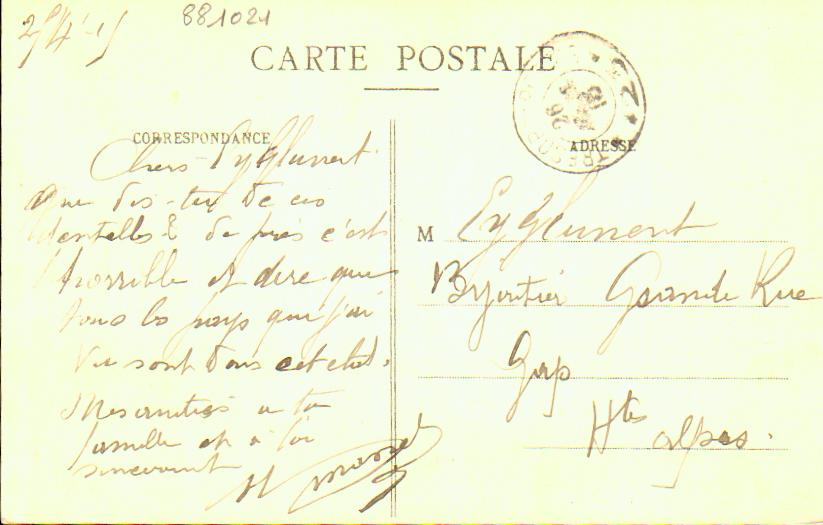 25/4-15
881021
CARTE POSTALE
TRESOR
26
15
CORRESPONDANCE
ADRESSE
Cher Eyglunent
Que dis-tu de ces
dentelles? de près c'est
horrible et dire que
tous les pays que j'ai
Vu sont dans cet état.
Mes amitiés a ta
famille et à toi
sincerement
M Eyglunent
Bijoutier Grande Rue
Gap
Htes alpes.